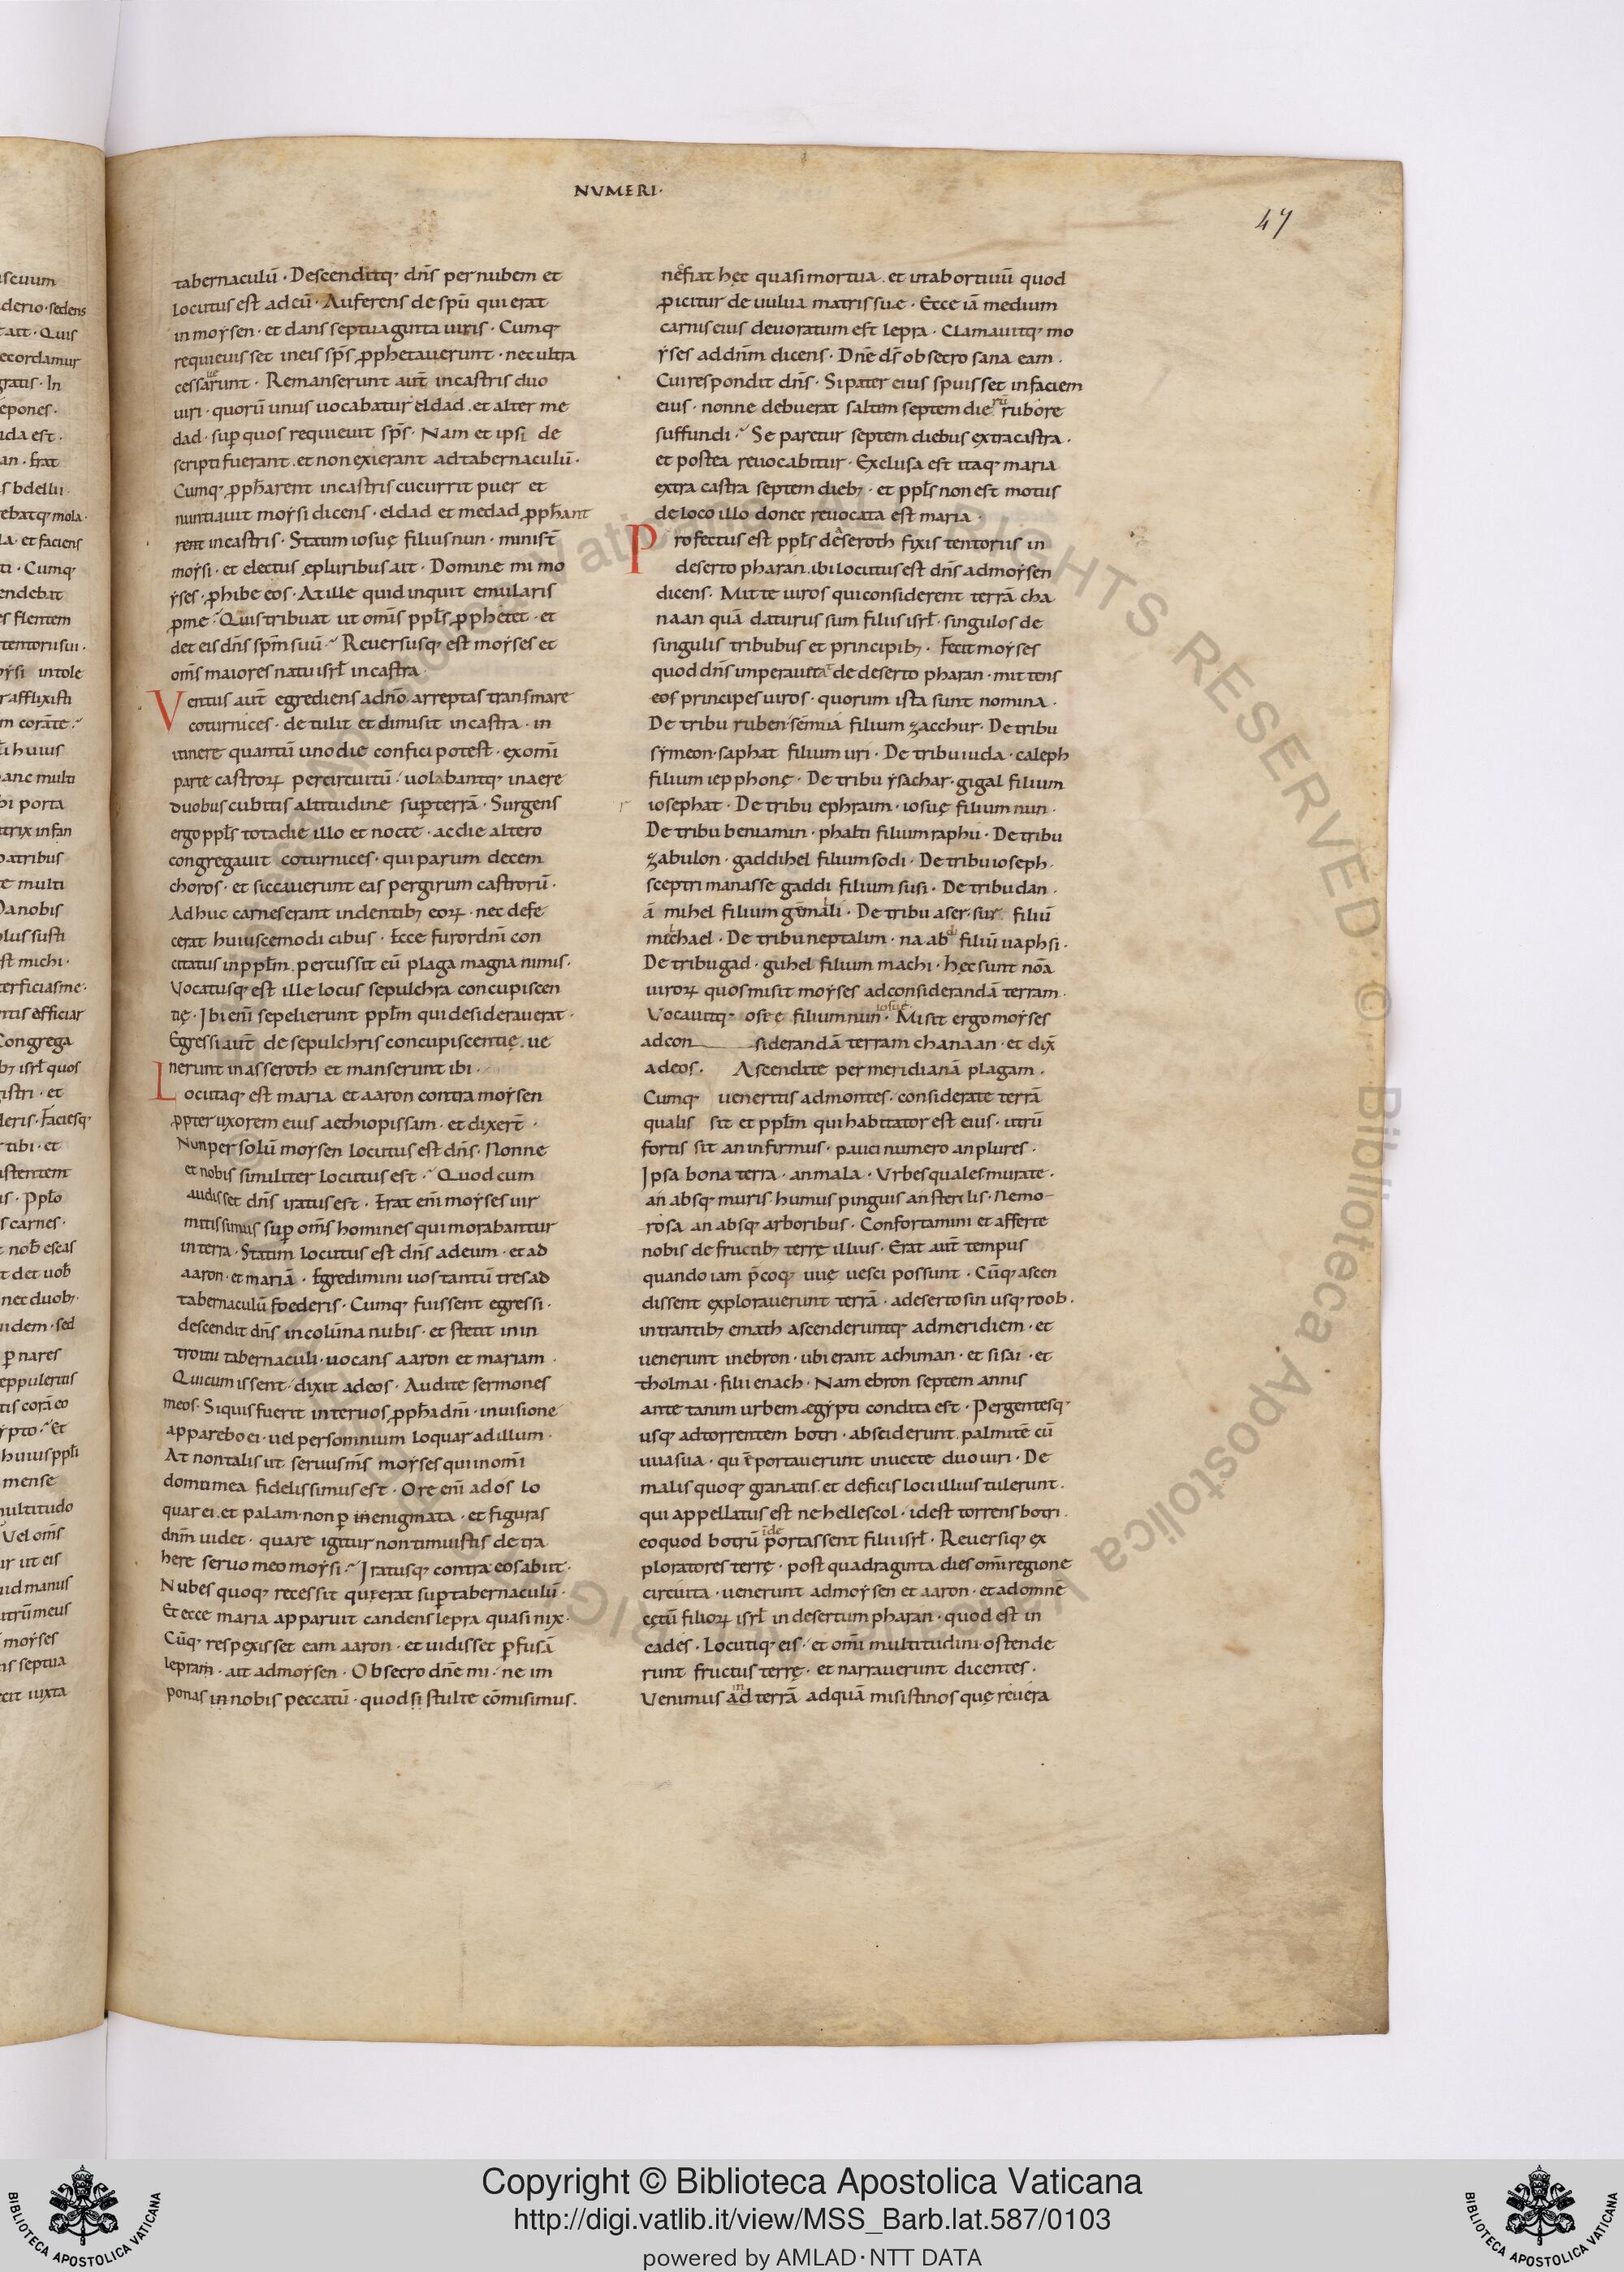 NUMERI·
47
tabernaculū · Descenditq; dn̄s per nubem et
locutus est ad eū · Auferens de sp̄u qui erat
in moysen · et dans septuaginta uiris · Cumq;
requieuisset in eis sp̄s ꝓphetauerunt · nec ultra
cessaruerunt · Remanserunt aūt in castris duo
uiri · quorū unus uocabatur eldad · et alter me
dad · sup̱ quos requieuit sp̄s · Nam et ipsi de
scripti fuerant · et non exierant ad tabernaculū ·
Cumq; ꝓph̄arent in castris cucurrit puer et
nuntiauit moysi dicens · eldad et medad ꝓph̄ant
rent in castris · Statim iosuę filius nun · minist̄
moysi · et electus e pluribus ait · Domine mi mo
yses · ꝓhibe eos · At ille quid inquit emularis
ꝓ me · Quis tribuat ut om̄s ppl̄s ꝓphetet · et
det eis dn̄s sp̄m suū · Reuersusq; est moyses et
om̄s maiores natu isrl̄ in castra ·
Ventus aūt egrediens a dn̄o arreptas trans mare
coturnices · detulit et dimisit in castra · in
itinere quantū uno die confici potest · ex om̄i
parte castroꝝ per circuitū · uolabantq; in aere
duobus cubitis altitudine sup̱ terrā · Surgens
ergo ppl̄s tota die illo et nocte · ac die altero
congregauit coturnices · qui parum decem
choros · et siccauerunt eas per girum castrorū ·
Adhuc carnes erant in dentib; eoꝝ · nec defe
cerat huiuscemodi cibus · Ecce furor dn̄i con
citatus in ppl̄m · percussit eū plaga magna nimis ·
Vocatusq; est ille locus sepulchra concupiscen
tię · Ibi eni̅ sepelierunt ppl̄m qui desiderauerat ·
Egressi aūt de sepulchris concupiscentię · ue
nerunt in asseroth et manserunt ibi ·
Locutaq; est maria et aaron contra moysen
ꝓpter uxorem eius aethiopissam · et dixer̄t ·
Nun per solū moysen locutus est dn̄s · Nonne
et nobis similiter locutus est · Quod cum
audisset dn̄s iratus est · Erat eni̅ moyses uir
mitissimus sup̱ om̄s homines qui morabantur
in terra · Statim locutus est dn̄s ad eum · et ad
aaron · et mariā · Egredimini uos tantū tres ad
tabernaculū foederis · Cumq; fuissent egressi ·
descendit dn̄s in colūna nubis · et stetit in in
troitu tabernaculi · uocans aaron et mariam ·
Qui cum issent · dixit ad eos · Audite sermones
meos · Si quis fuerit inter uos ꝓph̄a dn̄i · in uisione
apparebo ei · uel per somnium loquar ad illum ·
At non talis ut seruus m̄s moyses qui in om̄i
domu mea fidelissimus est · Ore eni̅ ad os lo
quar ei · et palam · non p̱ in enigmata · et figuras
dn̄m uidet · quare igitur non timuistis detra
here seruo meo moysi · Iratusq; contra eos abiit ·
Nubes quoq; recessit quę erat sup̱ tabernaculū ·
Et ecce maria apparuit candens lepra quasi nix ·
Cūq; respexisset eam aaron · et uidisset p̱fusā
lepram · ait ad moysen · Obsecro dn̄e mi · ne im
ponas in nobis peccatū · quod si stulte cōmisimus ·
ne fiat hęc quasi mortua · et ut abortiuū quod
ꝓicitur de uulua matris suę · Ecce iā medium
carnis eius deuoratum est lepra · Clamauitq; mo
yses ad dn̄m dicens · Dn̄e ds̄ obsecro sana eam ·
Cui respondit dn̄s · Si pater eius spuisset in faciem
eius · nonne debuerat saltim septem dierū rubore
suffundi · Separetur septem diebus extra castra ·
et postea reuocabitur · Exclusa est itaq; maria
extra castra septem dieb; · et ppl̄s non est motus
de loco illo donec reuocata est maria ·
Profectus est ppl̄s de seroth fixis tentoriis in
deserto pharan · ibi locutus est dn̄s ad moysen
dicens · Mitte uiros qui considerent terrā cha
naan quā daturus sum filiis isrl̄ · singulos de
singulis tribubus et principib; · Fecit moyses
quod dn̄s imperauerat de deserto pharan · mittens
eos principes uiros · quorum ista sunt nomina ·
De tribu ruben · semmua filium zacchur · De tribu
symeon · saphat filium uri · De tribu iuda · caleph
filium iepphonę · De tribu ysachar · gigal filium
iosephat · De tribu ephraim · iosuę filium nun ·
De tribu beniamin · phalti filium raphu · De tribu
zabulon · gaddihel filium sodi · De tribu ioseph ·
sceptri manasse gaddi filium susi · De tribu dan ·
ā mihel filium gēmali · De tribu aser · sur filiū
michael · De tribu neptalim · naabdi filiū uaphsi ·
De tribu gad · guhel filium machi · hęc sunt nōa
uiroꝝ quos misit moyses ad considerandā terram ·
Vocauitq; osee filium nun · iosuę · Misit ergo moyses
ad con siderandā terram chanaan · et dix̄
ad eos · Ascendite per meridianā plagam ·
Cumq; ueneritis ad montes · considerate terrā
qualis sit et ppl̄m qui habitator est eius · utrū
fortis sit an infirmus · pauci numero an plures ·
Ipsa bona terra · an mala · Vrbes quales murate ·
an absq; muris · humus pinguis an sterilis · Nemo-
rosa an absq; arboribus · Confortamini et afferte
nobis de fructib; terrę illius · Erat aūt tempus
quando iam p̄coq; uuę uesci possunt · Cūq; ascen
dissent explorauerunt terrā · a deserto sin usq; roob ·
intrantib; emath ascenderuntq; ad meridiem · et
uenerunt in ebron · ubi erant achiman · et sisai · et
tholmai · filii enach · Nam ebron septem annis
ante tanim urbem ægypti condita est · Pergentesq;
usq; ad torrentem botri · absciderunt palmitē cū
uua sua · quē portauerunt in uecte duo uiri · De
malis quoq; granatis · et de ficis loci illius tulerunt ·
qui appellatus est nehellescol · id est torrens botri ·
eo quod botrū inde portassent filii isrl̄ · Reuersiq; ex
ploratores terrę · post quadraginta dies om̄i regione
circuita · uenerunt ad moysen et aaron · et ad omnē
cętū filioꝝ isrl̄ in desertum pharan · quod est in
cades · Locutiq; eis · et om̄i multitudini ostende
runt fructus terrę · et narrauerunt dicentes ·
Venimus in ad terrā ad quā misisti nos quę reuera
Copyright © Biblioteca Apostolica Vaticana
http://digi.vatlib.it/view/MSS_Barb.lat.587/0103
powered by AMLAD·NTT DATA
BIBLIOTECA APOSTOLICA VATICANA
BIBLIOTECA APOSTOLICA VATICANA